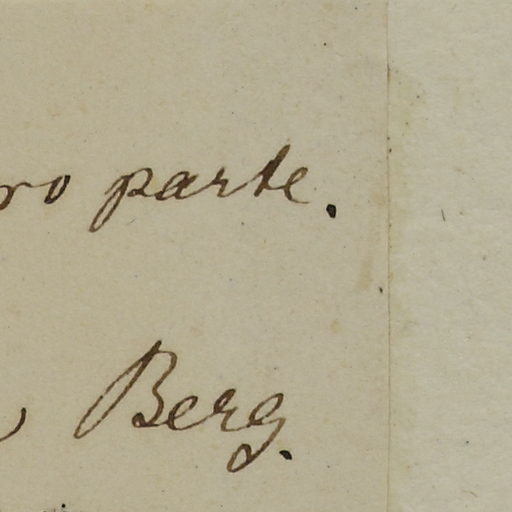 ro parte.
Berg.